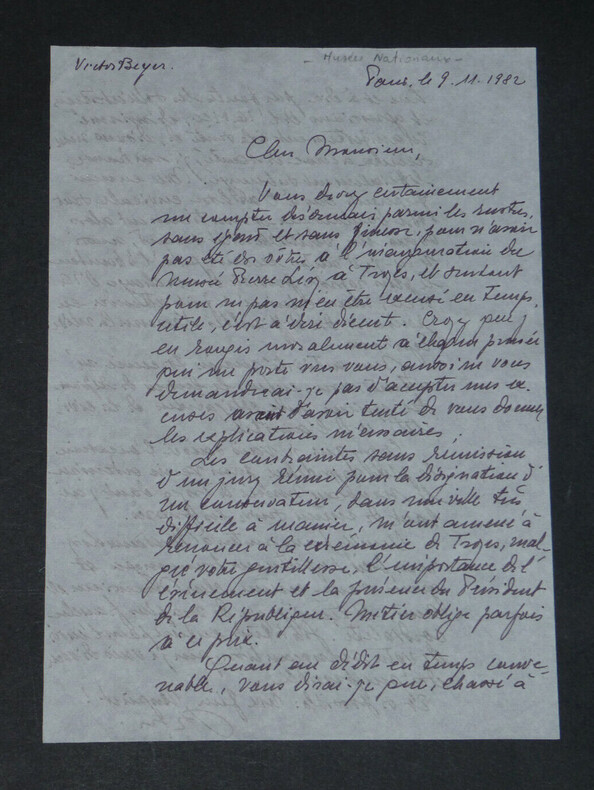 Victor Beyer.
- Musées Nationaux -
Paris, le 9.11.1982
Cher Monsieur,
Vous devez certainement
me compter désormais parmi les rustres,
sans esprit et sans finesse, pour n'avoir
pas été des vôtres à l'inauguration du
Musée Pierre Lévy à Troyes, et surtout
pour ne pas m'en être excusé en temps
utile, c'est à dire décent. Croyez que j'
en rougis moralement à chaque pensée
qui me porte vers vous, aussi ne vous
demanderai-je pas d'accepter mes ex
cuses avant d'avoir tenté de vous donner
les explications nécessaires.
Les contraintes sans rémission
d'un jury réuni pour la désignation d'
un conservateur, dans une ville très
difficile à manier, m'ont amené à
renoncer à la cérémonie de Troyes, mal-
gré votre gentillesse, l'importance de l'
évènement et la présence du Président
de la République. Métier oblige parfois
à ce prix.
Quant au dédit en temps conve-
nable, vous dirai-je que, chassé à